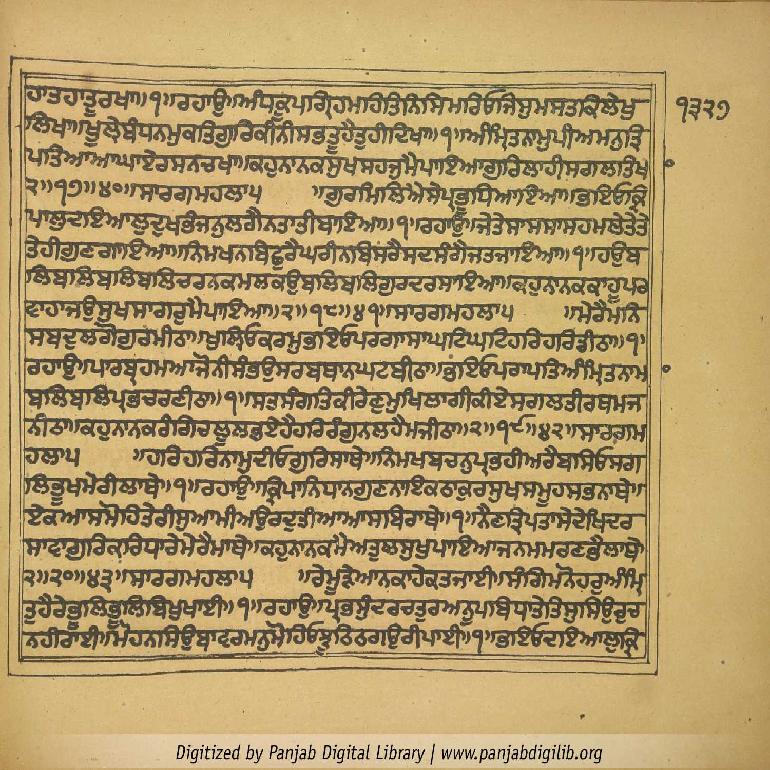 ਹਾਤਹਾਤੂਰਖਾ॥੧॥ਰਹਾਉ॥ਅੰਧਕੂਪਗ੍ਰਿਹਮਾਹਿਤਿਨਿਸਿਮਾਰਿਓਜਿਸੁਮਸਤਾਕਿਲੇਖੁ
ਲਿਖਾ॥ਖੂਲ੍ਹੇਬੰਧਨਮੁਕਤਿਗੁਰਿਕੀਨੀਸਭਤੂਹੈਤੁਹੀਦਿਖਾ॥੧॥ਅੰਮ੍ਰਿਤਨਾਮੁਪੀਅਮਨੁਤ੍ਰਿ
ਪਤਿਆਆਘਾਏਰਸਨਚਖਾ॥ਕਹੁਨਾਨਕਸੁਖਸਹਜੁਮੈਪਾਇਆਗੁਰਿਲਾਹੀਸਗਲਤਿਖ
੨॥੧੭॥੪੦॥ਸਾਰਗਮਹਲਾ੫ ॥ਗੁਰਮਿਲਿਐਸੇਪ੍ਰਭੂਧਿਆਇਆ॥ਭਇਓਕ੍ਰਿ
ਪਾਲੁਦਇਆਲੁਦੁਖਭੰਜਨੁਲਗੈਨਤਾਤੀਬਾਇਆ॥੧॥ਰਹਾਉ॥ਜੇਤੇਸਾਸਸਾਸਹਮਲੇਤੇਤੇ
ਤੇਹੀਗੁਣਗਾਇਆ॥ਨਿਮਖਨਬਿਛੁਰੈਘਰੀਨਬਿਸਰੈਸਦਸੰਗੇਜਤਜਾਇਆ॥੧॥ਹਉਬ
ਲਿਬਲਿਬਲਿਬਲਿਚਰਨਕਮਲਕਉਬਲਿਬਲਿਗੁਰਦਰਸਾਇਆ॥ਕਹੁਨਾਨਕਕਾਹੂਪਰ
ਵਾਹਾਜਉਸੁਖਸਾਗਰੁਮੈਪਾਇਆ॥੨॥੧੮॥੪੧॥ਸਾਰਗਮਹਲਾ੫ ॥ਮੇਰੈਮਨਿ
ਸਬਦੁਲਗੋਗੁਰਮੀਠਾ॥ਖੁਲਿਓਕਰਮੁਭਇਓਪਰਗਾਸਾਘਟਿਘਟਿਹਰਿਹਰਿਡੀਠਾ॥੧॥
ਰਹਾਉ॥ਪਾਰਬ੍ਰਹਮਆਜੋਨੀਸੰਭਉਸਰਬਥਾਨਘਟਬੀਠਾ॥ਭਇਓਪਰਾਪਤਿਅੰਮ੍ਰਿਤਨਾਮ
ਬਲਿਬਲਿਪ੍ਰਭਚਰਣੀਠਾ॥੧॥ਸਤਸੰਗਤਿਕੀਰੇਣੁਮੁਖਿਲਾਗੀਕੀਏਸਗਲਤੀਰਥਮਜ
ਨੀਠਾ॥ਕਹੁਨਾਨਕਰੰਗਿਚਲੂਲਭਏਹੈਹਰਿਰੰਗੁਨਲਹੈਮਜੀਠਾ॥੨॥੧੯॥੪੨॥ਸਾਰਗਮ
ਹਲਾ੫ ॥ਹਰਿਹਰਿਨਾਮੁਦੀਓਗੁਰਿਸਾਥੇ॥ਨਿਮਖਬਚਨੁਪ੍ਰਭਹੀਅਰੈਬਸਿਓਸਗ
ਲਿਭੂਖਮੇਰੀਲਾਥੇ॥੧॥ਰਹਾਉ॥ਕ੍ਰਿਪਾਨਿਧਾਨਗੁਣਨਾਇਕਠਾਕੁਰਸੁਖਸਮੂਹਸਭਨਾਥੇ॥
ਏਕਆਸਮੋਹਿਤੇਰੀਸੁਆਮੀਅਉਰਦੁਤੀਆਆਸਬਿਰਾਥੇ॥੧॥ਨੈਣਤ੍ਰਿਪਤਾਸੇਦੇਖਿਦਰ
ਸਾਵਾਗੁਰਿਕਰਿਧਾਰੇਮੇਰੈਮਾਥੇ॥ਕਹੁਨਾਨਕਮੈਅਤੁਲਸੁਖੁਪਾਇਆਜਨਮਮਰਣਭੈਲਾਥੇ
੨॥੨੦॥੪੩॥ਸਾਰਗਮਹਲਾ੫ ॥ਰੇਮੂੜ੍ਹੇਆਨਕਾਹੇਕਤਜਾਈ॥ਸੰਗਿਮਨੋਹਰੁਅੰਮ੍ਰਿ
ਤੁਹੈਰੇਭੂਲਿਭੂਲਿਬਿਖੁਖਾਈ॥੧॥ਰਹਾਉ॥ਪ੍ਰਭਸੁੰਦਰਚਤੁਰਅਨੂਪਬਿਧਾਤੇਤਿਸੁਸਿਉਰੁਚ
ਨਹੀਰਾਈ॥ਮੋਹਨਸਿਉਬਾਵਰਮਨੁਮੋਹਿਓਝੂਠਿਠਗਉਰੀਪਾਈ॥੧॥ਭਇਓਦਇਆਲੁਕ੍ਰਿ
੧੩੨੭
Digitized by Panjab Digital Library | www.panjabdigilib.org